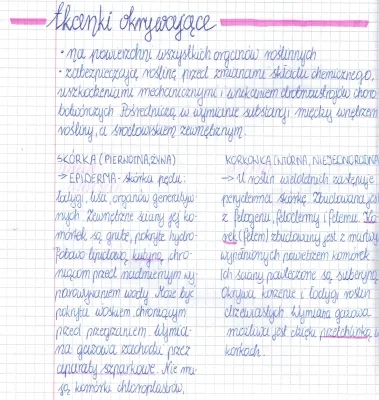 tkanki okrywające
• na powierzchni wszystkich organów roślinnych
• zabezpieczają roślinę przed zmianami składu chemicznego,
uszkodzeniami mechanicznymi i wnikaniem drobnoustrojów choro
botwórczych Pośredniczą w wymianie substancji między wnętrzem
rośliny, a środowiskiem zewnętrznym.
SKÓRKA (PIERWOTNA, ŻYWA)
→ EPIDERMA - skórka pędu:
łodygi, liści, organów generatyw-
nych. Zewnętrzne ściany jej ko-
mórek są grube, pokryte hydro-
fobową lipidową kutyną chro-
niącą przed nadmiernym wy-
parowywaniem wody. Może być
pokryta woskiem chroniącym
przed przegrzaniem. Wymia-
na gazowa zachodzi przez
aparaty szparkowe. Nie ma-
ją komórki chloroplastów,
KORKOWICA (WTÓRNA, NIEJEDNORODNA
→ U roślin wieloletnich zastępuje
peryderma skórkę. Zbudowana jest
z felogenu, felodermy i fellemu. Ko
rek (fellem) zbudowany jest z martwych
wypełnionych powietrzem komórek
Ich ściany powleczone są suberyną.
Okrywa korzenie i łodygi roślin
drzewiastych. Wymiana gazowa
możliwa jest dzięki przetchlinkom w
korkach.